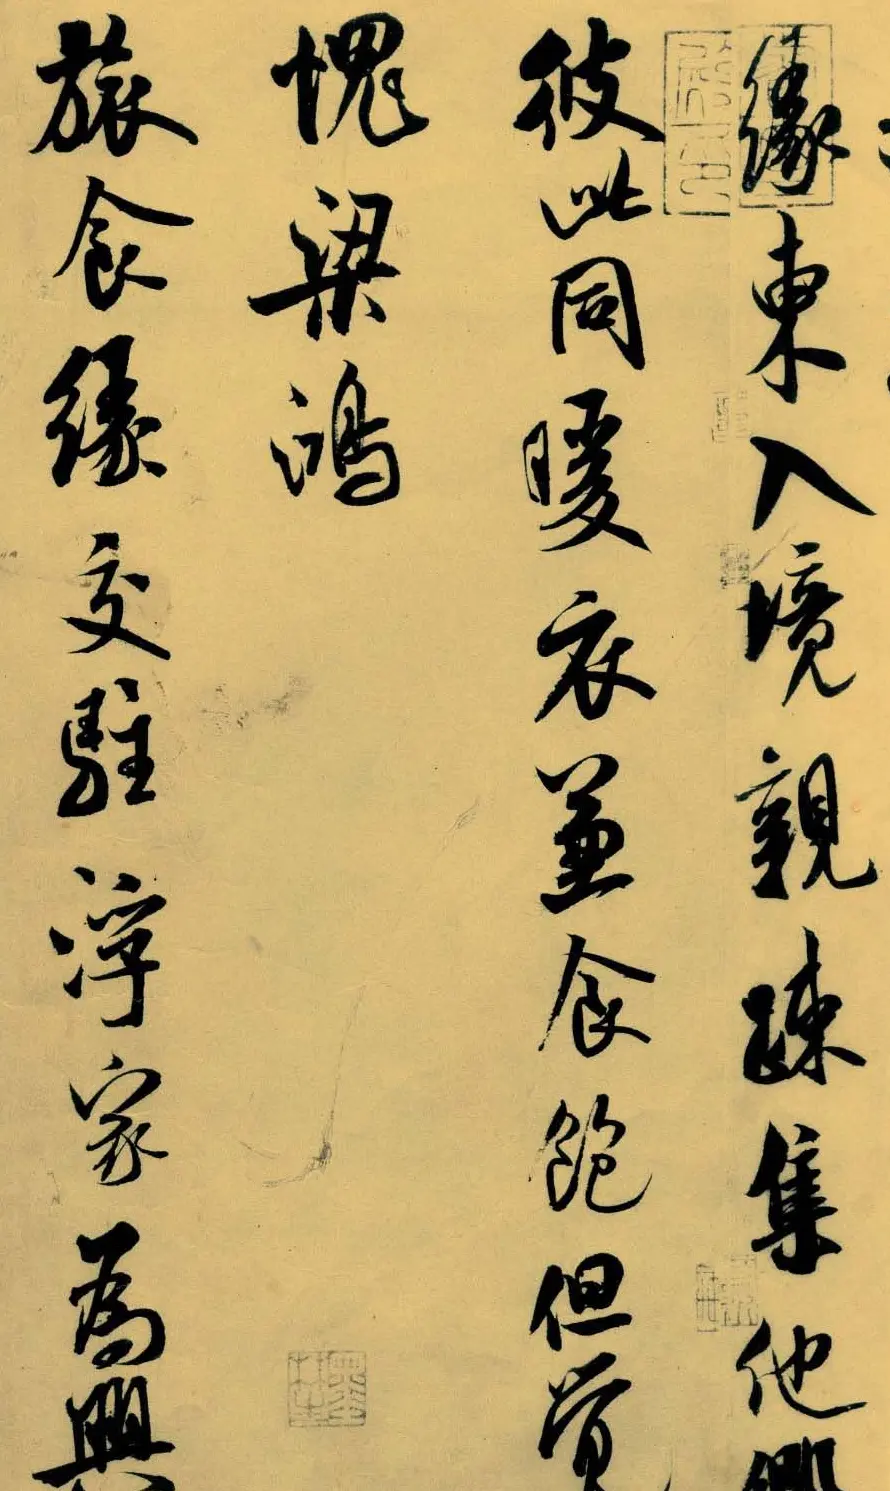 缘東入境親踈集他鄉
彼此同暖衣兼食飽但覺
愧梁鴻
旅食緣交駐浮家為興